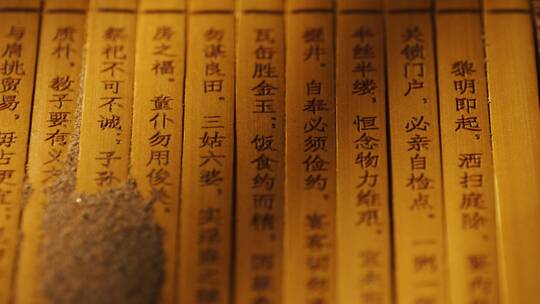 黎明即起，洒扫庭除，要内
关锁门户，必亲自检点。一粥
半丝半缕，恒念物力维艰。宜未
掘井。自奉必须俭约，宴客切勿
瓦缶胜金玉；饭食约而精，园蔬
勿谋良田。三姑六婆，实淫盗之
房之福。童仆勿用俊美
祭祀不可不诚；子孙
质朴，教子要有义
与肩挑贸易，毋占便